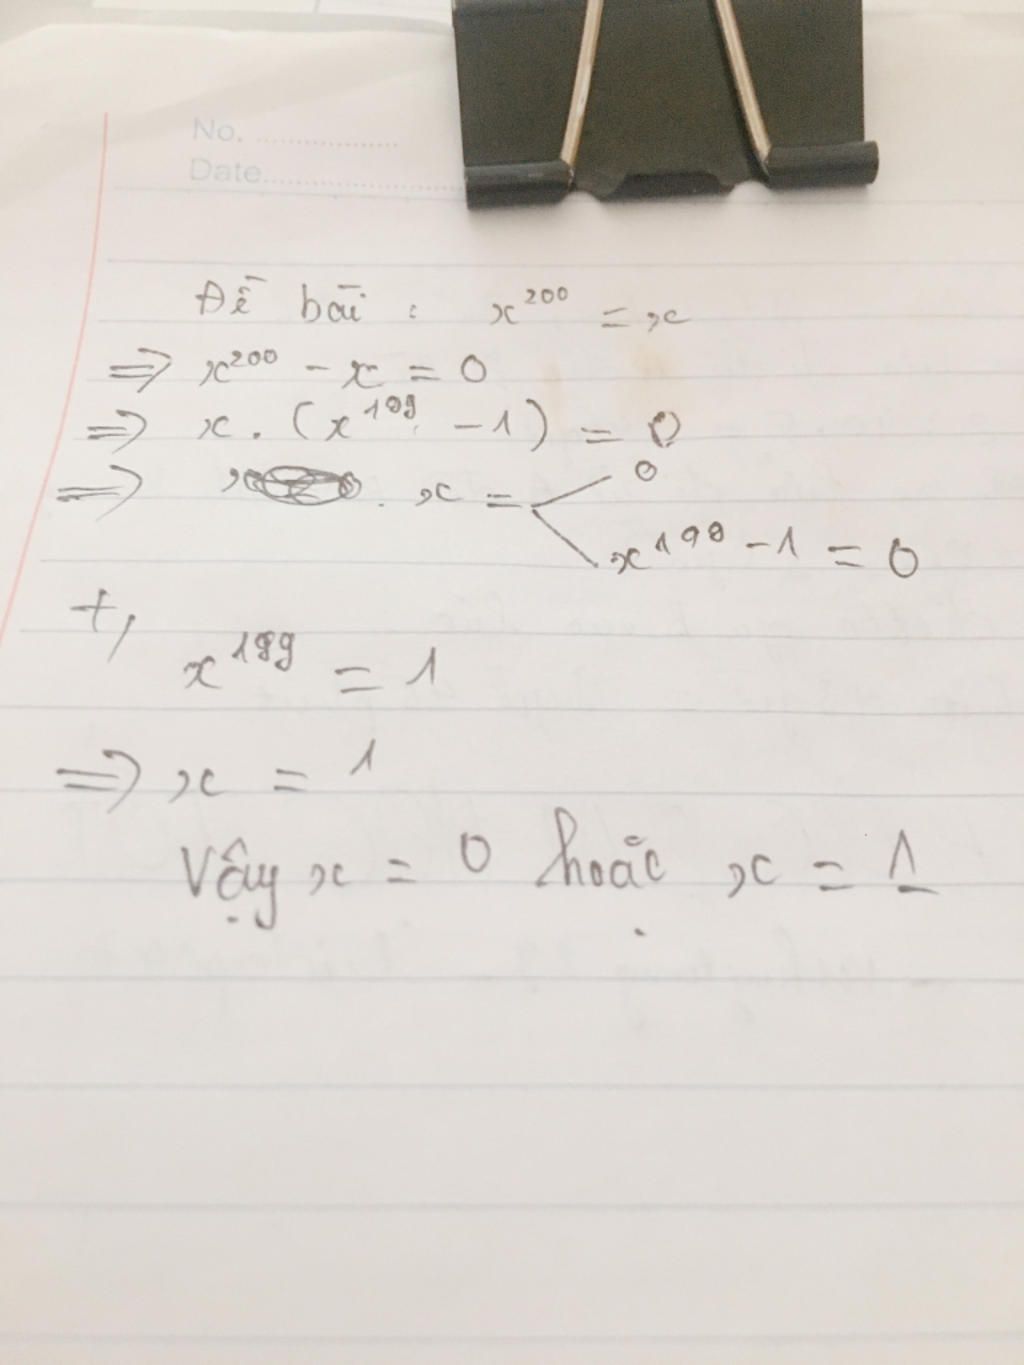 No. ....................
Date............................
Đề bài : x²⁰⁰ = x
=> x²⁰⁰ - x = 0
=> x . (x¹⁹⁹ - 1) = 0
=> x = 0
x¹⁹⁹ - 1 = 0
+, x¹⁹⁹ = 1
=> x = 1
Vậy x = 0 hoặc x = 1